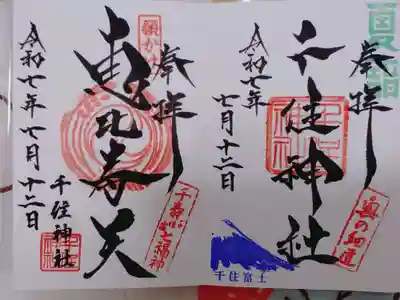 夏詣
奉拝
千住神社
令和七年
七月十二日
奥の細道
千住富士
願かけ
奉拝
恵比寿天
千寿七福神
令和七年七月十二日
千住神社